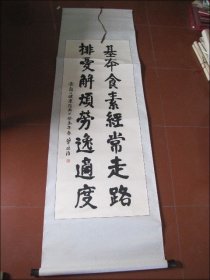 基本食素經常走路
排憂解煩勞逸適度